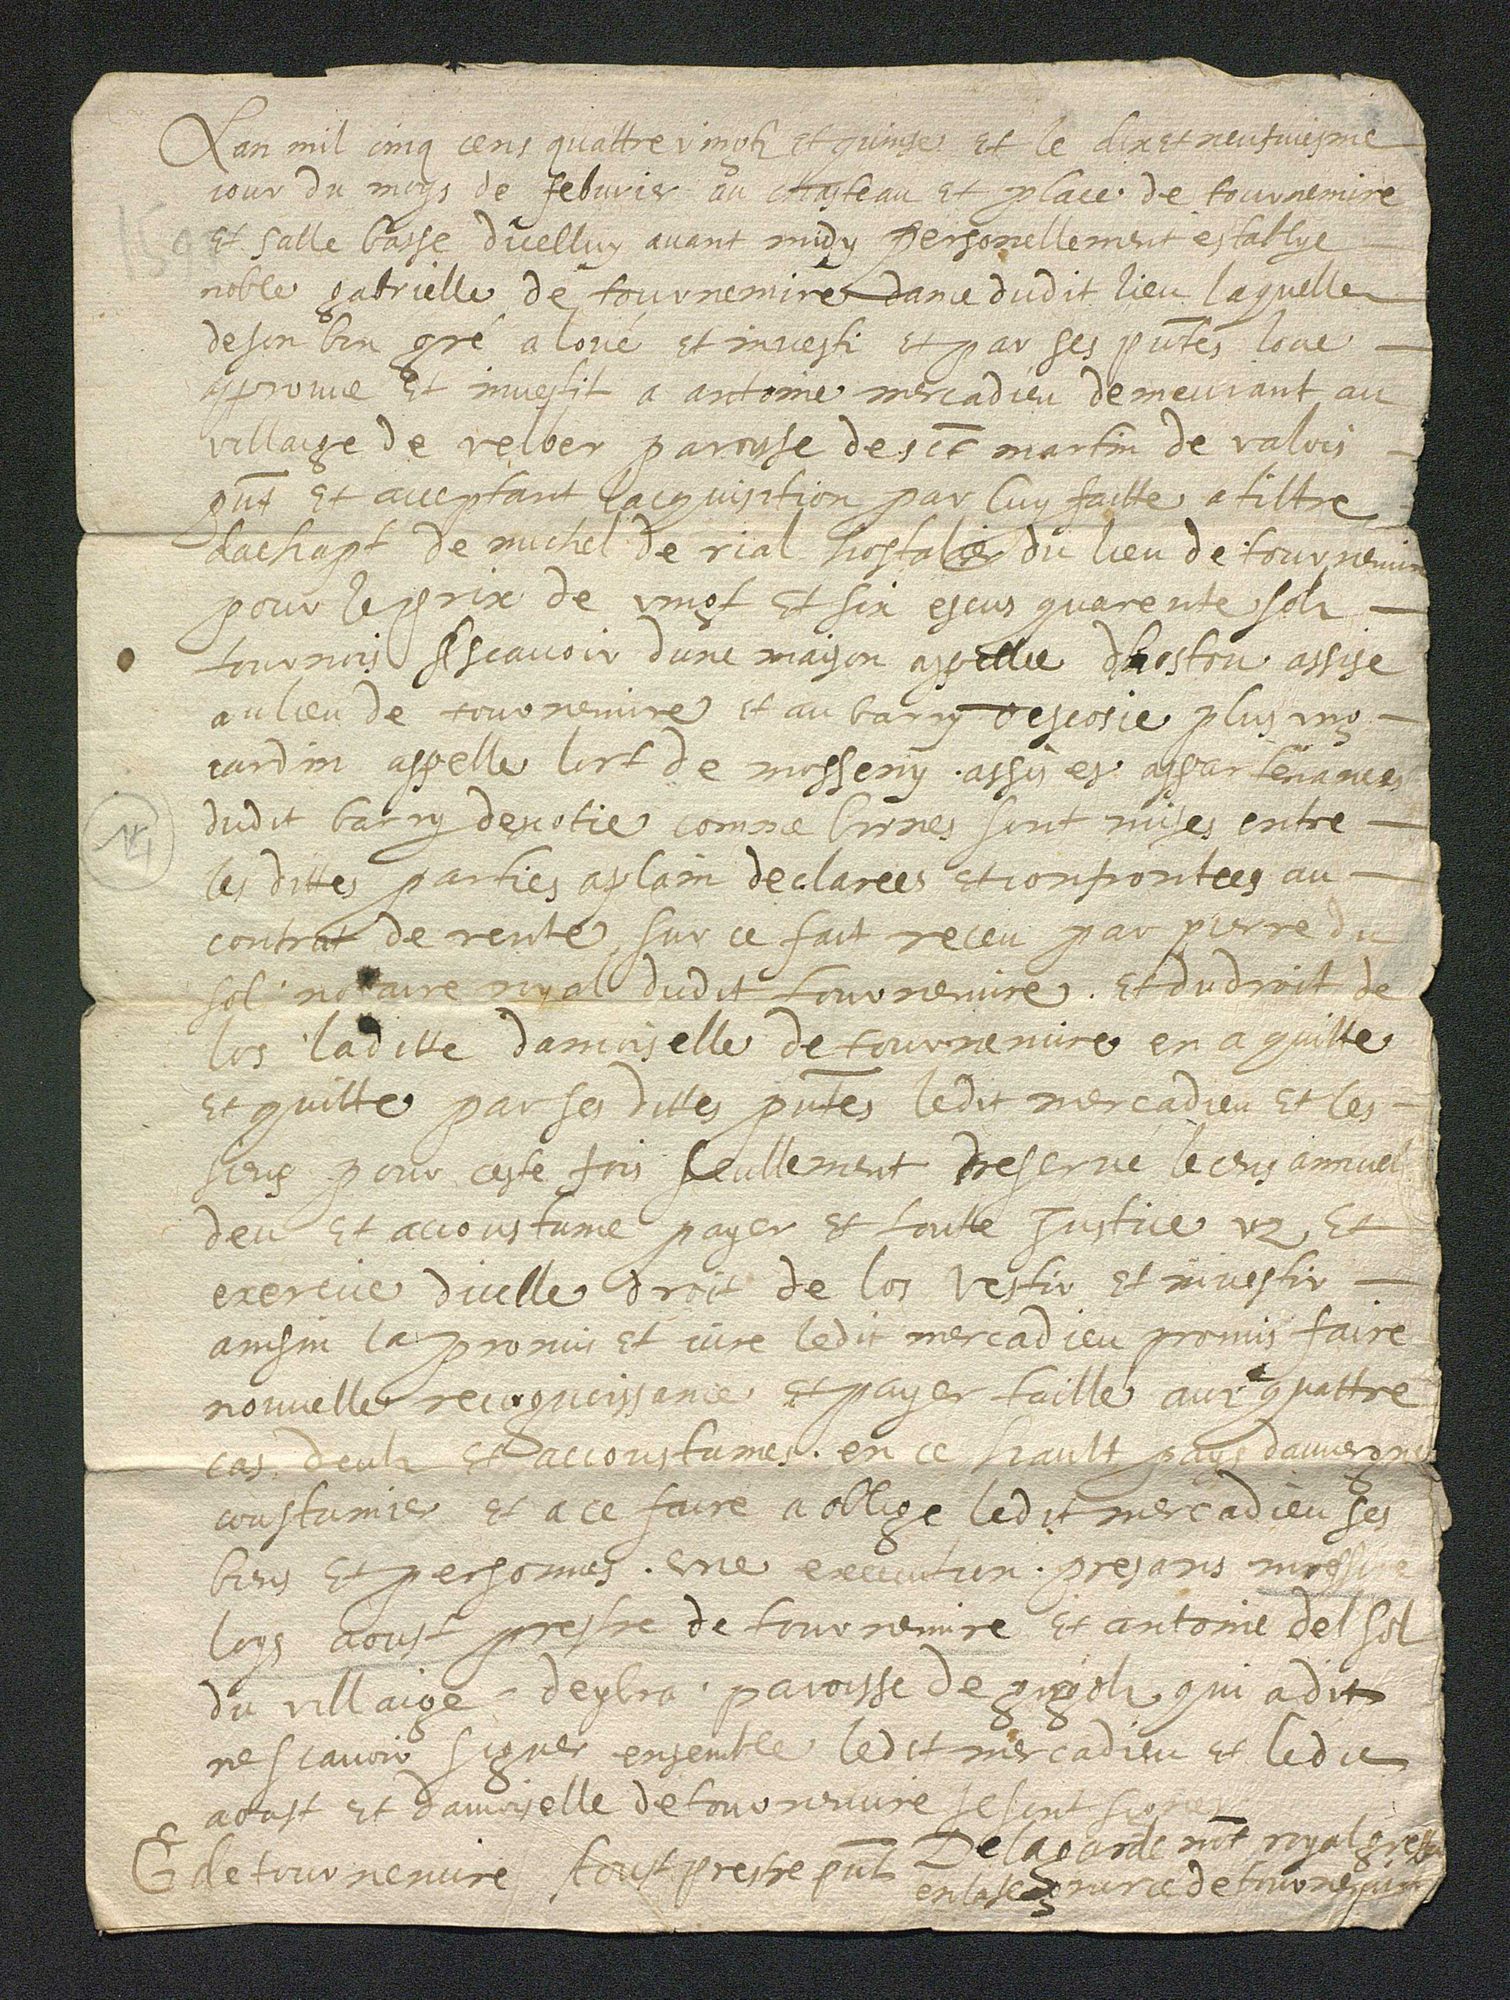 Lan mil cinq cens quattre vingtz et quinse et le dix et neufuiesme
iour du moys de feburier au chasteau et place de tournemire
et salle basse dicelluy auant midy personellement establye
1595
noble gabrielle de tournemire dame dudit lieu laquelle
de son bon gré a loué et inuesti et par ses pntes loue
approuue et inuestit a antoine mercadieu demeurant au
villaige de velber paroysse de sct martin de valois
pnt et acceptant lacquisition par luy faitte a tiltre
dachapt de michel de rial hostalier du lieu de tournemire
pour le prix de vingt et six escus quarente solz
tournois Sscauoir dune maison appellee dhoston assise
au lieu de tournemire et au barry descosie plus vng
iardin appelle lort de mosseny assis es appartenances
dudit barry descotie comme bornes sont mises entre
14
les dittes parties aplain declarees et confrontees au
contrat de vente sur ce fait receu par pierre du
sol notaire royal dudit tournemire. et du droit de
los laditte damoiselle de tournemire en a quitte
et quitte par ses dittes pntes ledit mercadieu et les
siens pour ceste fois seullement reserue le cens annuel
deu et accoustume payer et toutte Justice vz et
exercice dicelle droit de los vestir et inuestir
ainsin la promis et iure ledit mercadieu promis faire
nouuelle recognoissance et payer taille aux quattre
cas deulz et accoustumes. en ce hault pays dauuergne
coustumier et a ce faire a oblige ledit mercadieu ses
biens et personnes. vne execution. presans messire
loys aoust prestre de tournemire et antoine del sol
du villaige deybra. paroisse de girgolz qui a dit
ne scauoir signer ensemble ledit mercadieu et ledit
aoust et damoyselle de tournemire se sont signes
G de tournemire Aoust prestre pnt Delagarde not royal greffier
en la seigneurie de tournemire